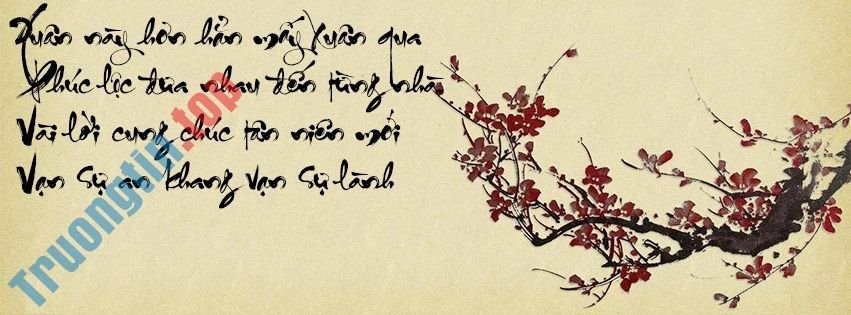 Xuân này hơn hẳn mấy Xuân qua
Phúc lộc đưa nhau đến từng nhà
Vài lời cung chúc tân niên mới
Vạn sự an khang vạn sự lành
Truongtin.top